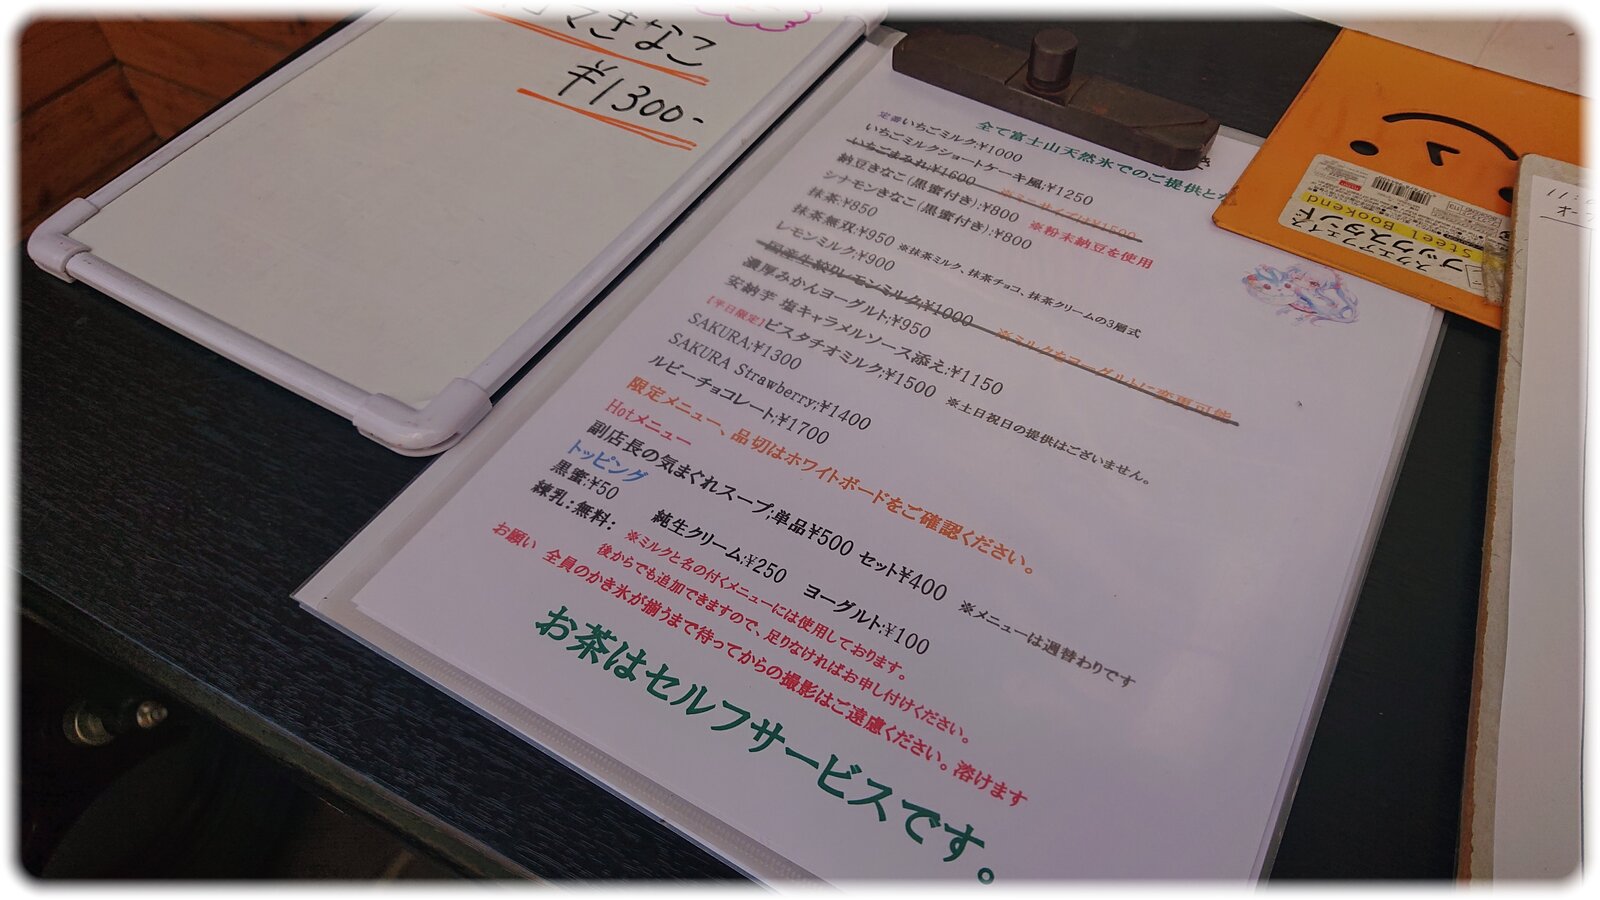 マきなこ
¥1300-
全て富士山天然氷でのご提供とな
定番いちごミルク;¥1000
いちごミルクショートケーキ風;¥1250
いちごまみれ;¥1600
納豆きなこ(黒蜜付き):¥800 ※粉末納豆を使用
シナモンきなこ(黒蜜付き):¥800
抹茶:¥850
抹茶無双:¥950 ※抹茶ミルク、抹茶チョコ、抹茶クリームの3層式
レモンミルク;¥900
国産生絞りレモンミルク;¥1000 ※ミルクをヨーグルトに変更可能
濃厚みかんヨーグルト;¥950
安納芋 塩キャラメルソース添え:¥1150
【平日限定】ピスタチオミルク;¥1500 ※土日祝日の提供はございません。
SAKURA:¥1300
SAKURA Strawberry;¥1400
ルビーチョコレート;¥1700
限定メニュー、品切はホワイトボードをご確認ください。
Hotメニュー
副店長の気まぐれスープ;単品¥500 セット¥400 ※メニューは週替わりです
トッピング
黒蜜:¥50 純生クリーム;¥250 ヨーグルト;¥100
練乳:無料: ※ミルクと名の付くメニューには使用しております。
後からでも追加できますので、足りなければお申し付けください。
お願い 全員のかき氷が揃うまで待ってからの撮影はご遠慮ください。溶けます
お茶はセルフサービスです。
スクエアフェイス
ブックスタンド
Steel Bookend